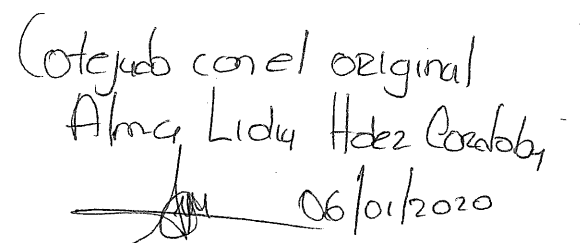 Cotejado con el original
Alma Lidia Hdez Cordoba
06/01/2020